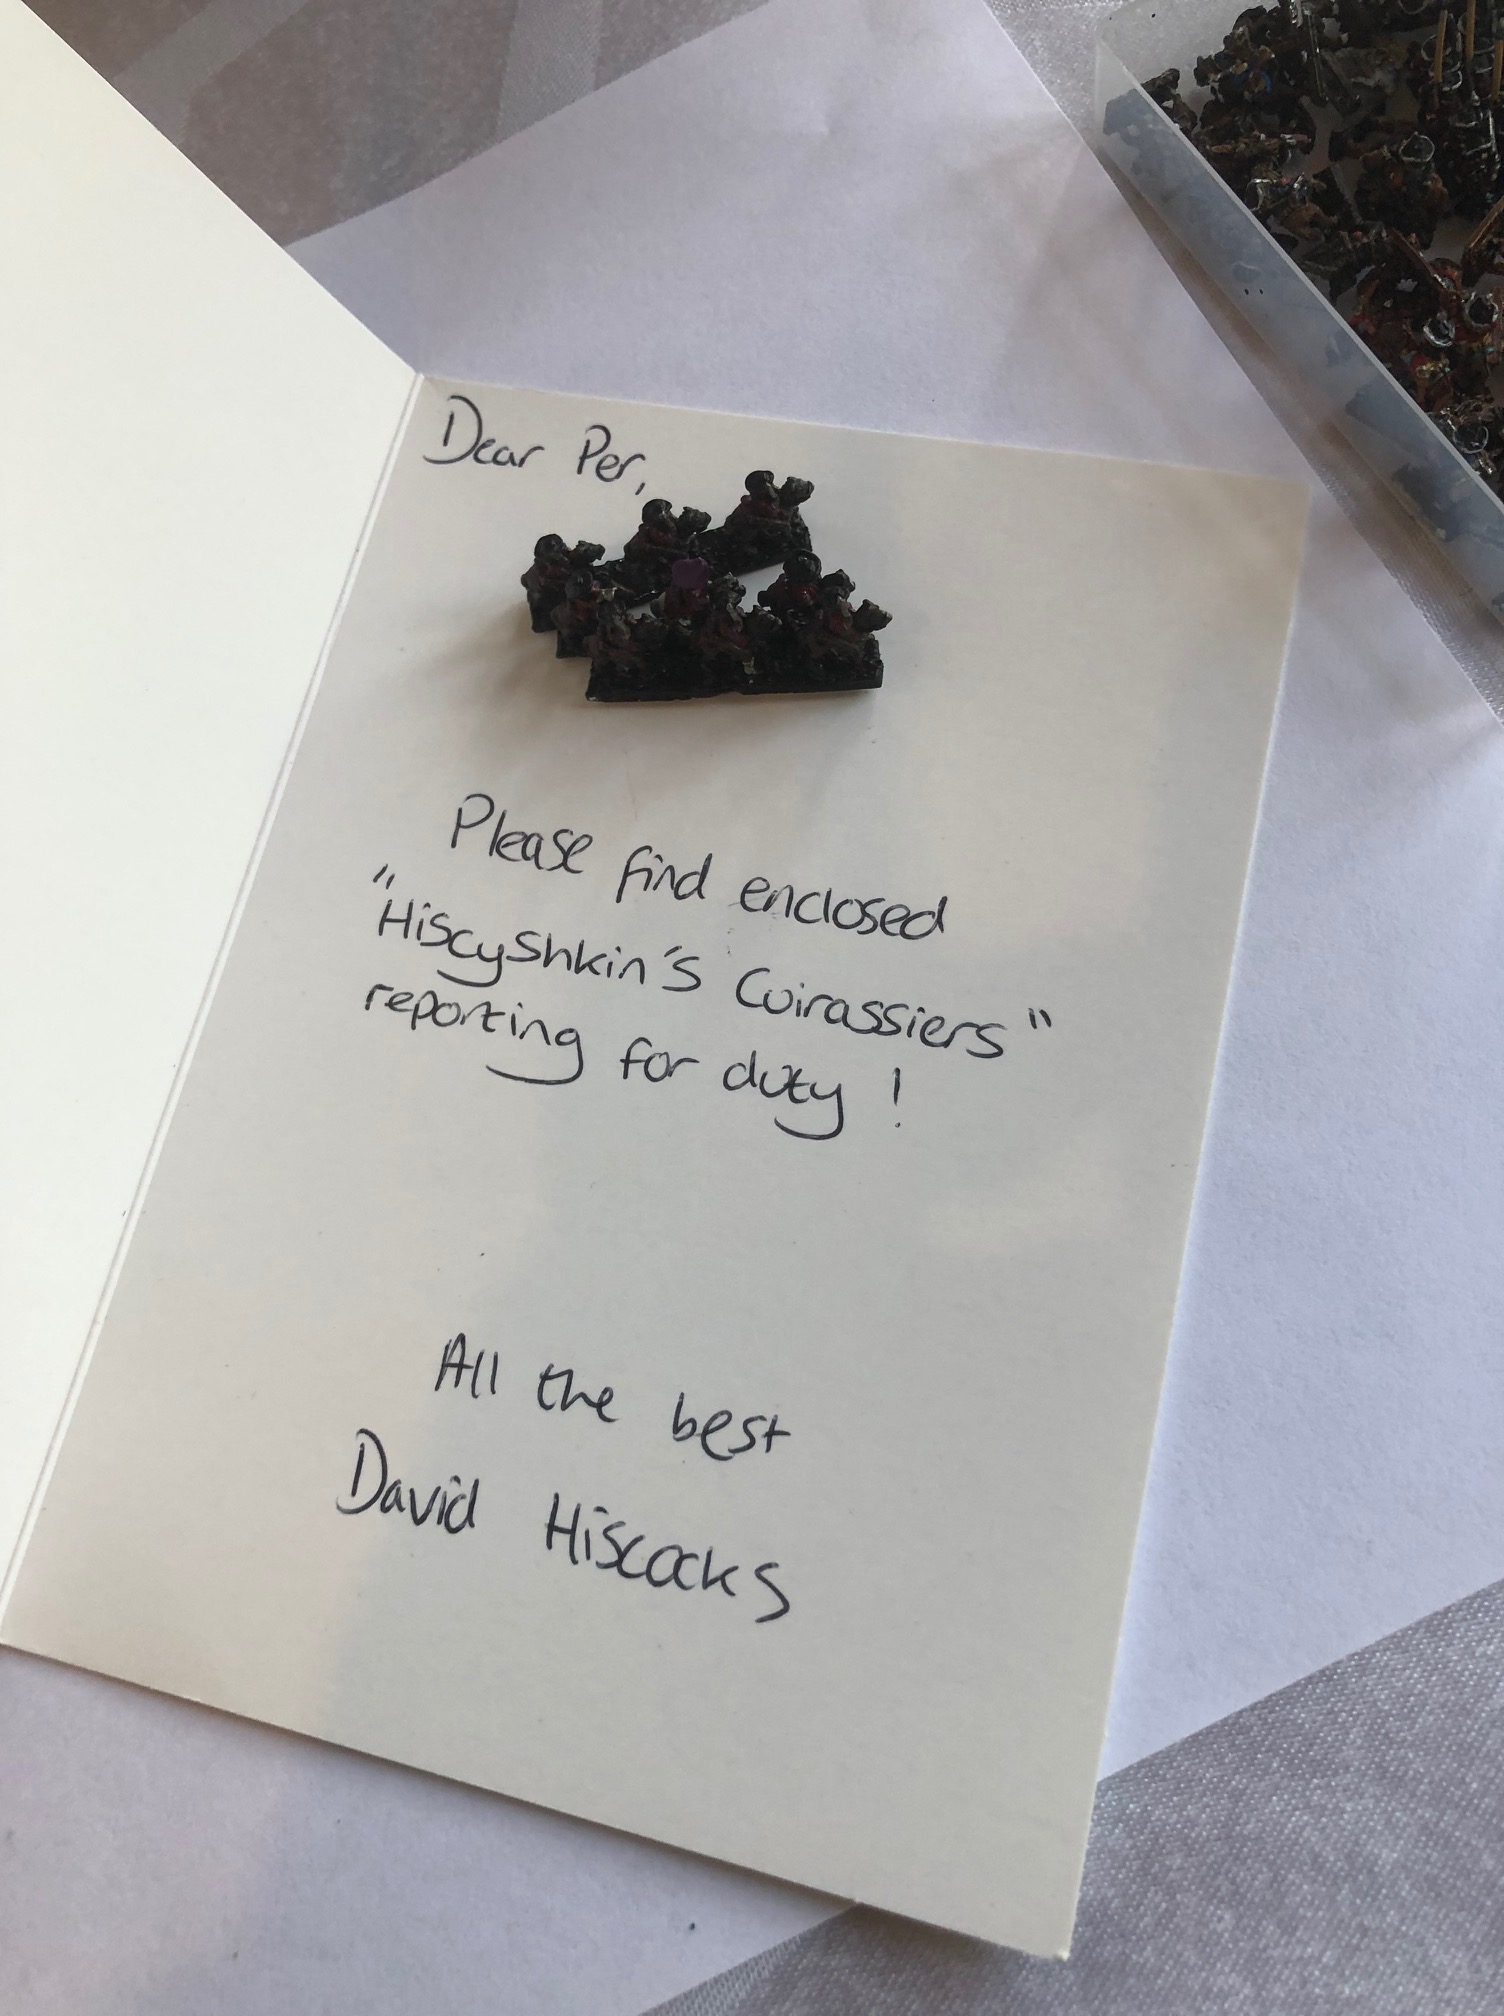 Dear Per,
Please find enclosed
"Hiscyshkin's Cuirassiers"
reporting for duty!
All the best
David Hiscocks